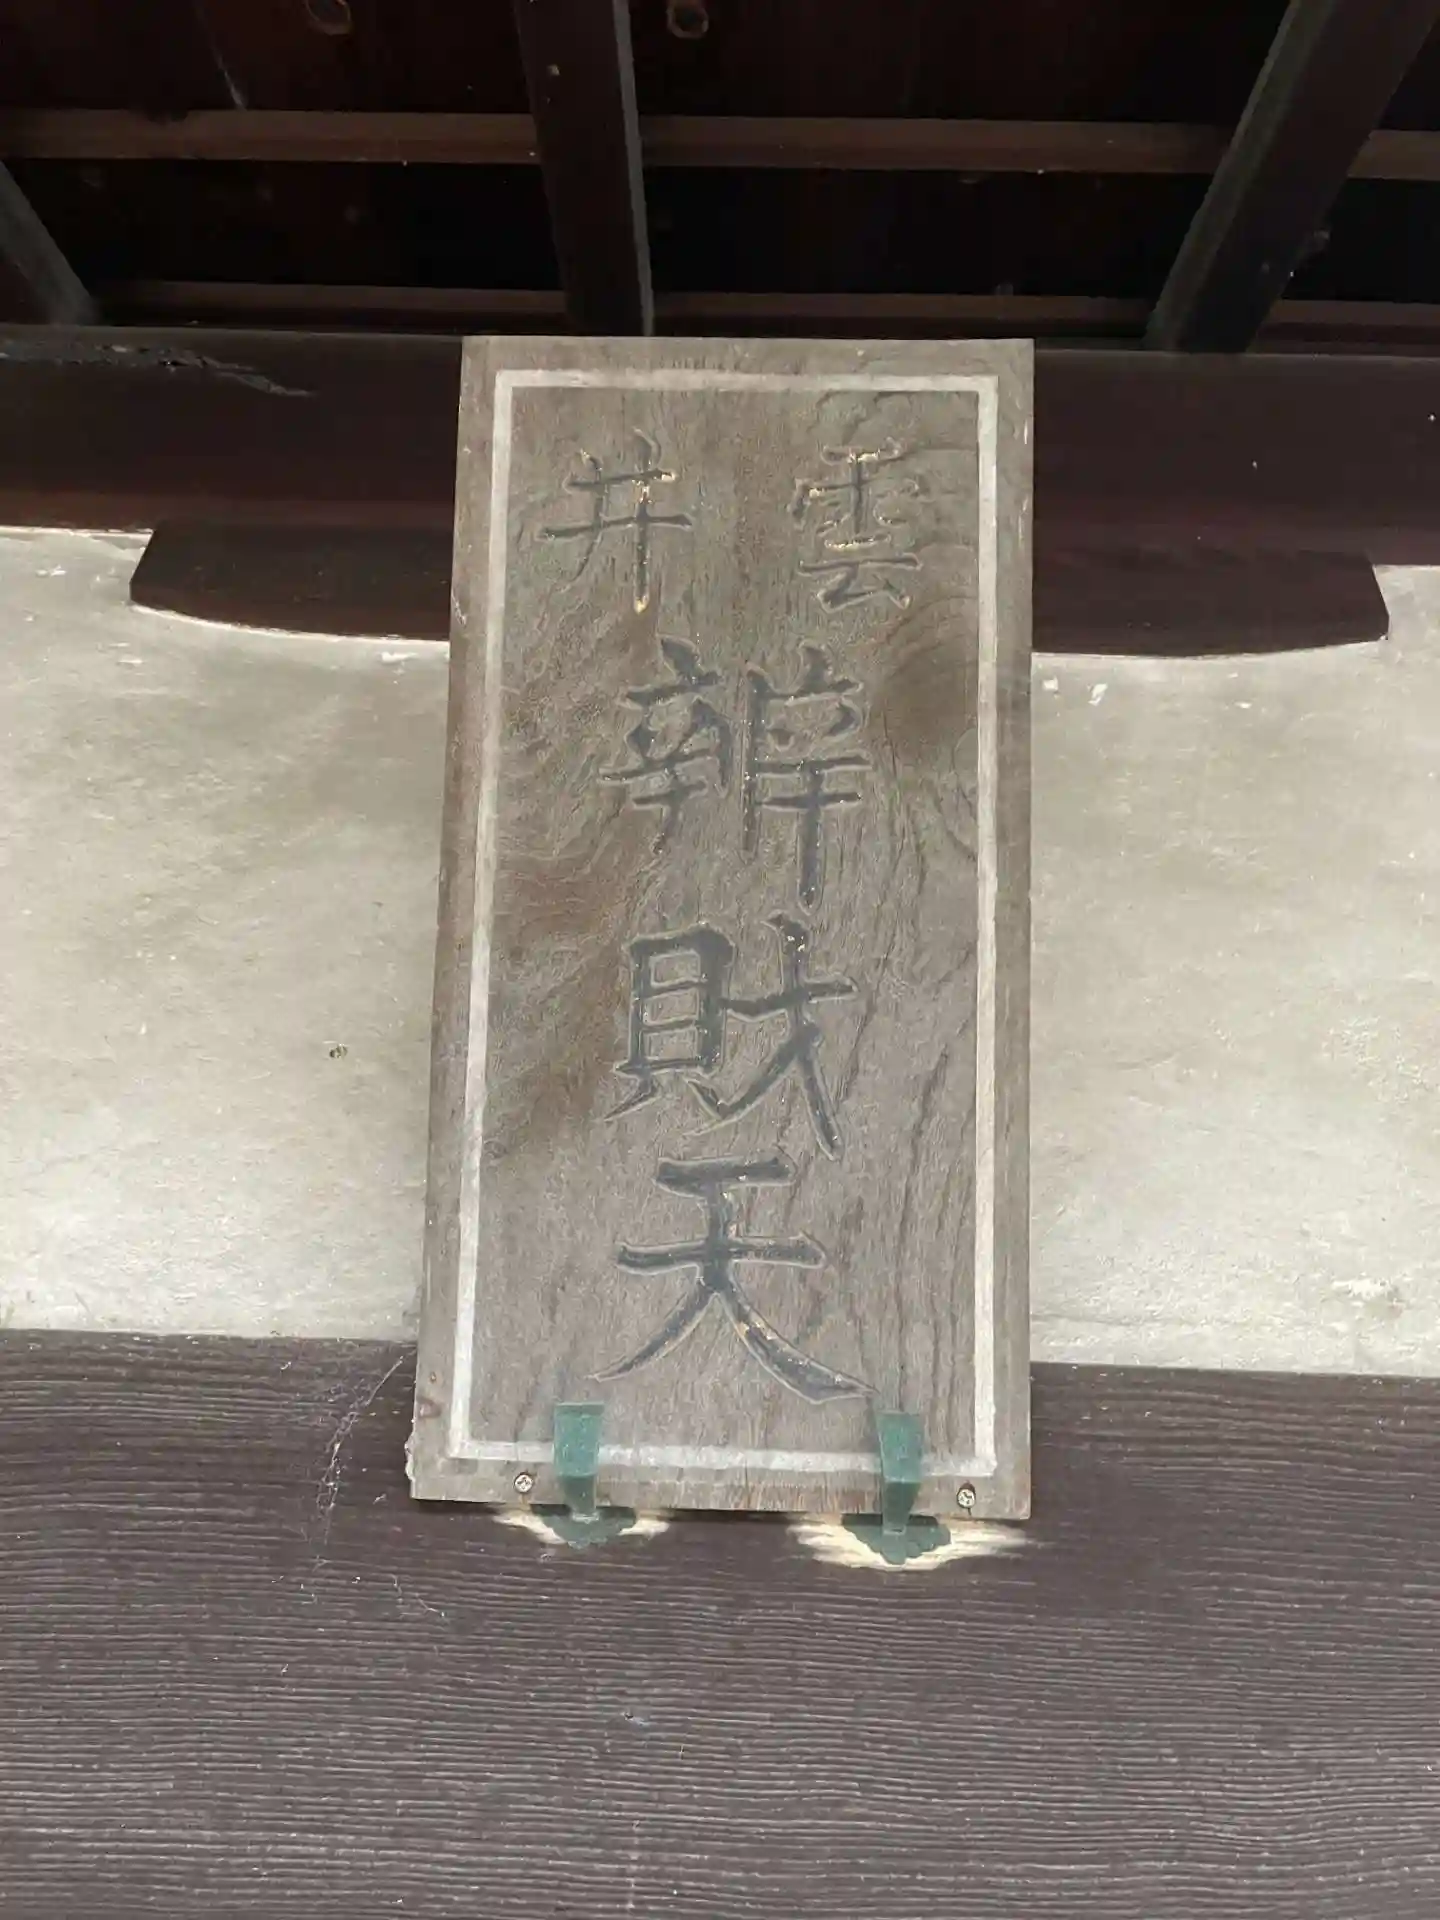 雲井
辨財天